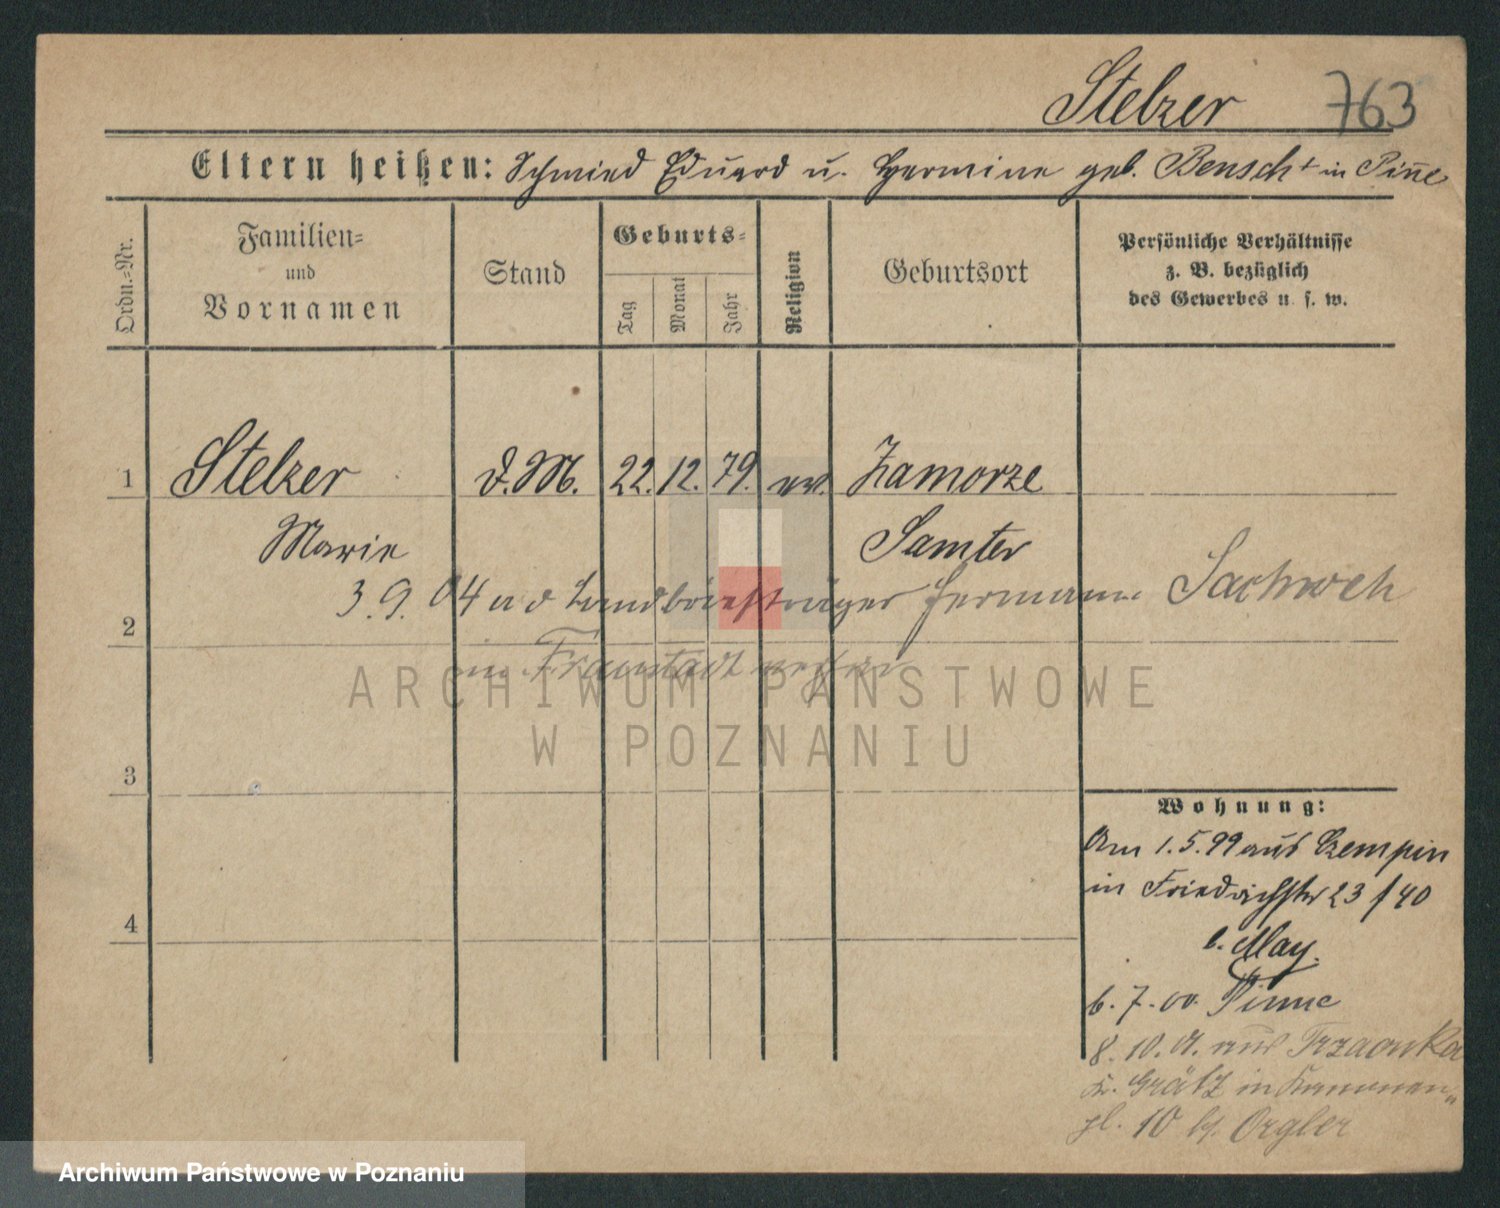 Stelzer 763
Eltern heißen: Schmied Eduard u. Hermine geb. Bensch + in Pinne
Ordn.=Nr.
Familien=
und
Vornamen
Stand
Geburts=
Tag
Monat
Jahr
Religion
Geburtsort
Persönliche Verhältnisse
z. B. bezüglich
des Gewerbes u. s. w.
1 Stelzer d. M. 22. 12. 79. ev. Zamorze
Marie Samter
3. 9. 04 a d Landbriefträger Hermann Sachweh
2
in Fraustadt verh.
ARCHIWUM PAŃSTWOWE
W POZNANIU
3
Wohnung:
Am 1.5.99 aus Czempin
in Friedrichstr 23/40
b. May.
4
6. 7. 00. Pinne
8. 10. 01. aus Trzcionka
Kr. Grätz in Kanonen„
pl. 10 b/. Orgler
Archiwum Państwowe w Poznaniu